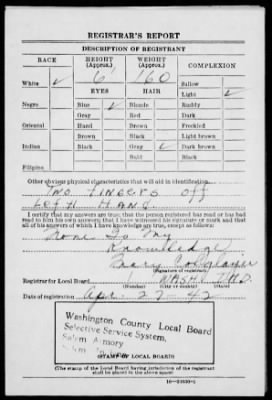 REGISTRAR'S REPORT
DESCRIPTION OF REGISTRANT
RACE HEIGHT (Approx.) WEIGHT (Approx.) COMPLEXION
White ✓ 6' 160 Sallow
EYES HAIR Light ✓
Negro Blue ✓ Blonde Ruddy
Gray Red Dark
Oriental Hazel Brown Freckled
Brown Black Light brown
Indian Black Gray ✓ Dark brown
Bald Black
Filipino
Other obvious physical characteristics that will aid in identification
Two Fingers off
Left Hand
I certify that my answers are true; that the person registered has read or has had
read to him his own answers; that I have witnessed his signature or mark and that
all of his answers of which I have knowledge are true, except as follows:
None To My
Knowledge
(Signature of registrar)
Registrar for Local Board WASH. IND.
(Number) (City or county) (State)
Date of registration Apr 27-42
Washington County Local Board
Selective Service System,
Salem Armory
Salem, Indiana
(STAMP OF LOCAL BOARD)
(The stamp of the Local Board having jurisdiction of the registrant
shall be placed in the above space)